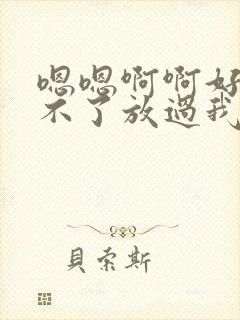 嗯嗯啊啊好
不了放過我
貝索斯